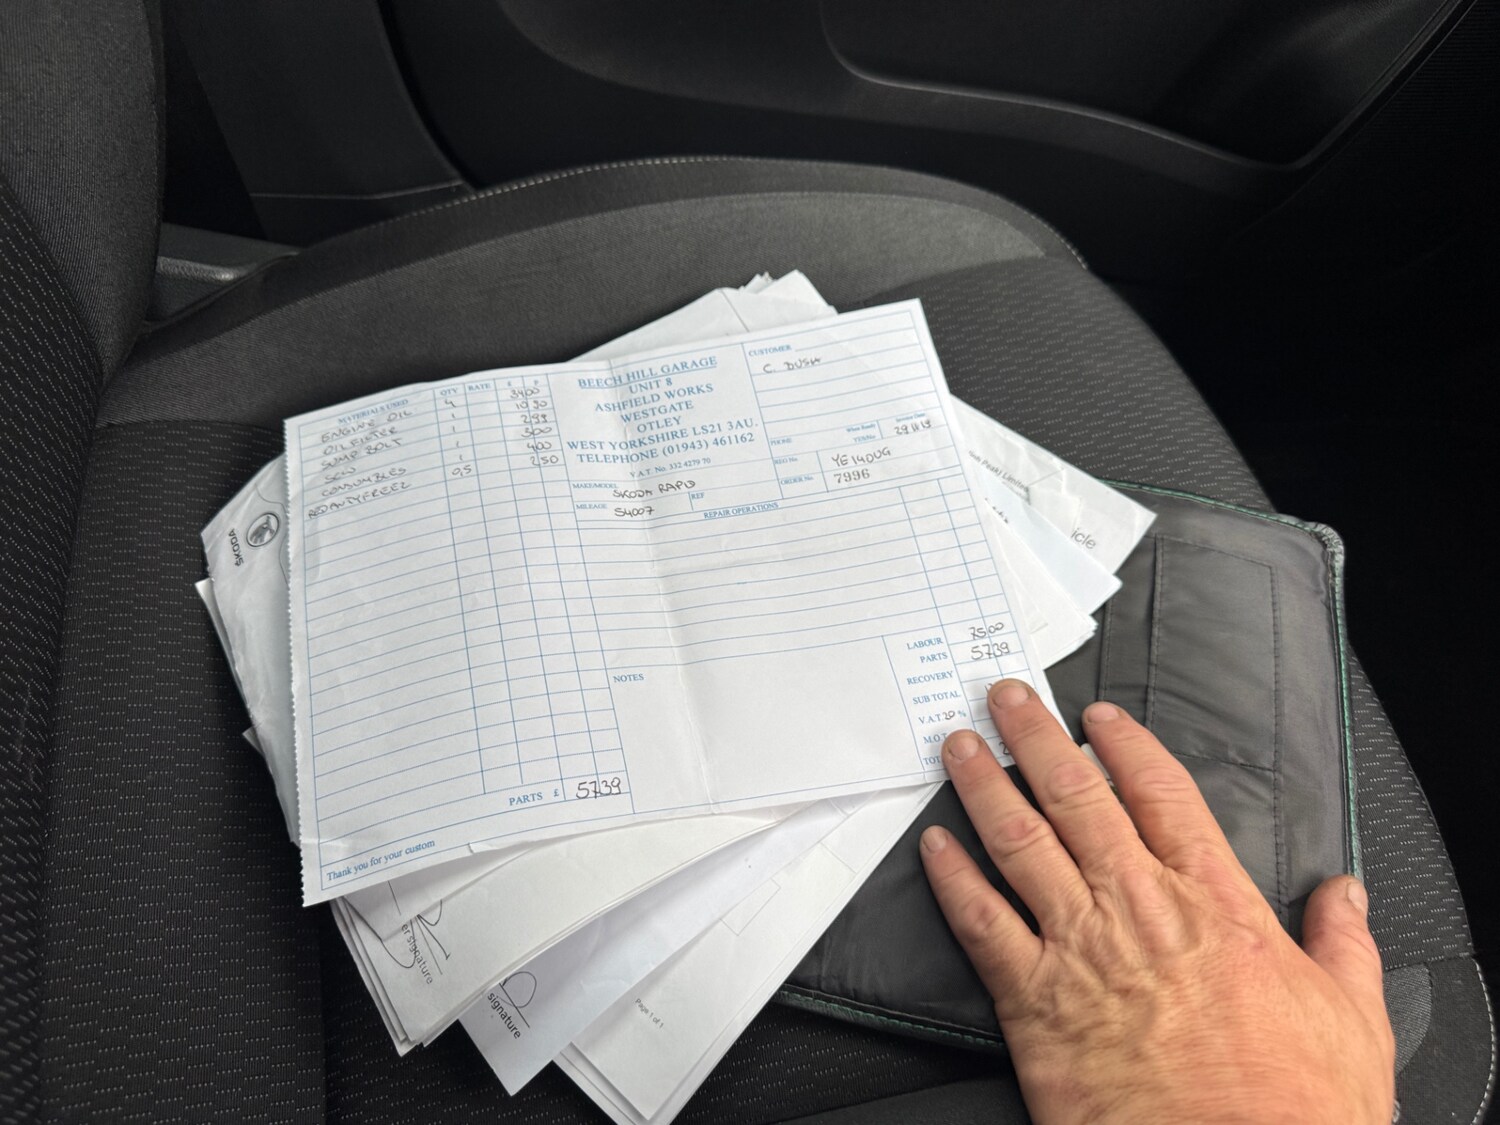 MATERIALS USED QTY RATE £ P
ENGINE OIL 4 3400
OILFILTER 1 10 90
SUMP BOLT 1 2,99
SCW 1 300
CONSUMABLES 1 400
RED ANTYFREEZ 0,5 2,50
PARTS £ 5739
Thank you for your custom
BEECH HILL GARAGE
UNIT 8
ASHFIELD WORKS
WESTGATE
OTLEY
WEST YORKSHIRE LS21 3AU.
TELEPHONE (01943) 461162
V.A.T. No. 332 4279 70
MAKE/MODEL SKODA RAPID REF
MILEAGE 54007
CUSTOMER
C. DUSH
PHONE When Ready Invoice Date
29 11 19
REG No. YE14OUG
ORDER No. 7996
REPAIR OPERATIONS
NOTES
LABOUR 75.00
PARTS 5739
RECOVERY
SUB TOTAL
V.A.T 20 %
M.O.T.
ŠKODA
Limited
icle
er signature
signature
Page 1 of 1